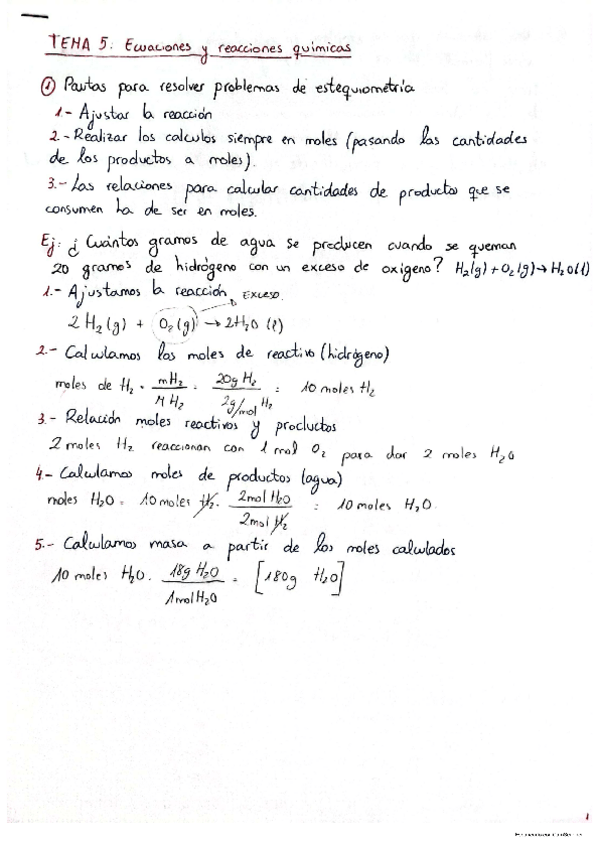 TEMA 5: Ecuaciones y reacciones químicas
① Pautas para resolver problemas de estequiometría
1.- Ajustar la reacción
2.- Realizar los calculos siempre en moles (pasando las cantidades
de los productos a moles).
3.- Las relaciones para calcular cantidades de productos que se
consumen ha de ser en moles.
Ej: ¿Cuántos gramos de agua se producen cuando se queman
20 gramos de hidrógeno con un exceso de oxígeno? H₂(g) + O₂(g) → H₂O(l)
1.- Ajustamos la reacción EXCESO
2 H₂(g) + O₂(g) → 2H₂O (l)
2.- Calculamos los moles de reactivo (hidrógeno)
moles de H₂ = mH₂ / M H₂ = 20g H₂ / 2g/mol H₂ = 10 moles H₂
3.- Relación moles reactivos y productos
2 moles H₂ reaccionan con 1 mol O₂ para dar 2 moles H₂O
4.- Calculamos moles de productos (agua)
moles H₂O = 10 moles H₂ · 2mol H₂O / 2mol H₂ = 10 moles H₂O.
5.- Calculamos masa a partir de los moles calculados
10 moles H₂O · 18g H₂O / 1mol H₂O = [180g H₂O]
1